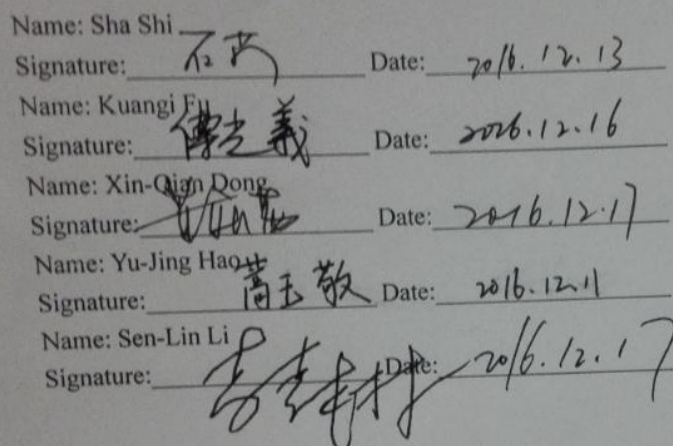 Name: Sha Shi
Signature: 石 Date: 2016.12.13
Name: Kuangi Fu
Signature: 傅光義 Date: 2026.12.16
Name: Xin-Qian Dong
Signature: Date: 2016.12.17
Name: Yu-Jing Hao
Signature: 蒿玉敬 Date: 2016.12.11
Name: Sen-Lin Li
Signature: Date: 2016.12.17